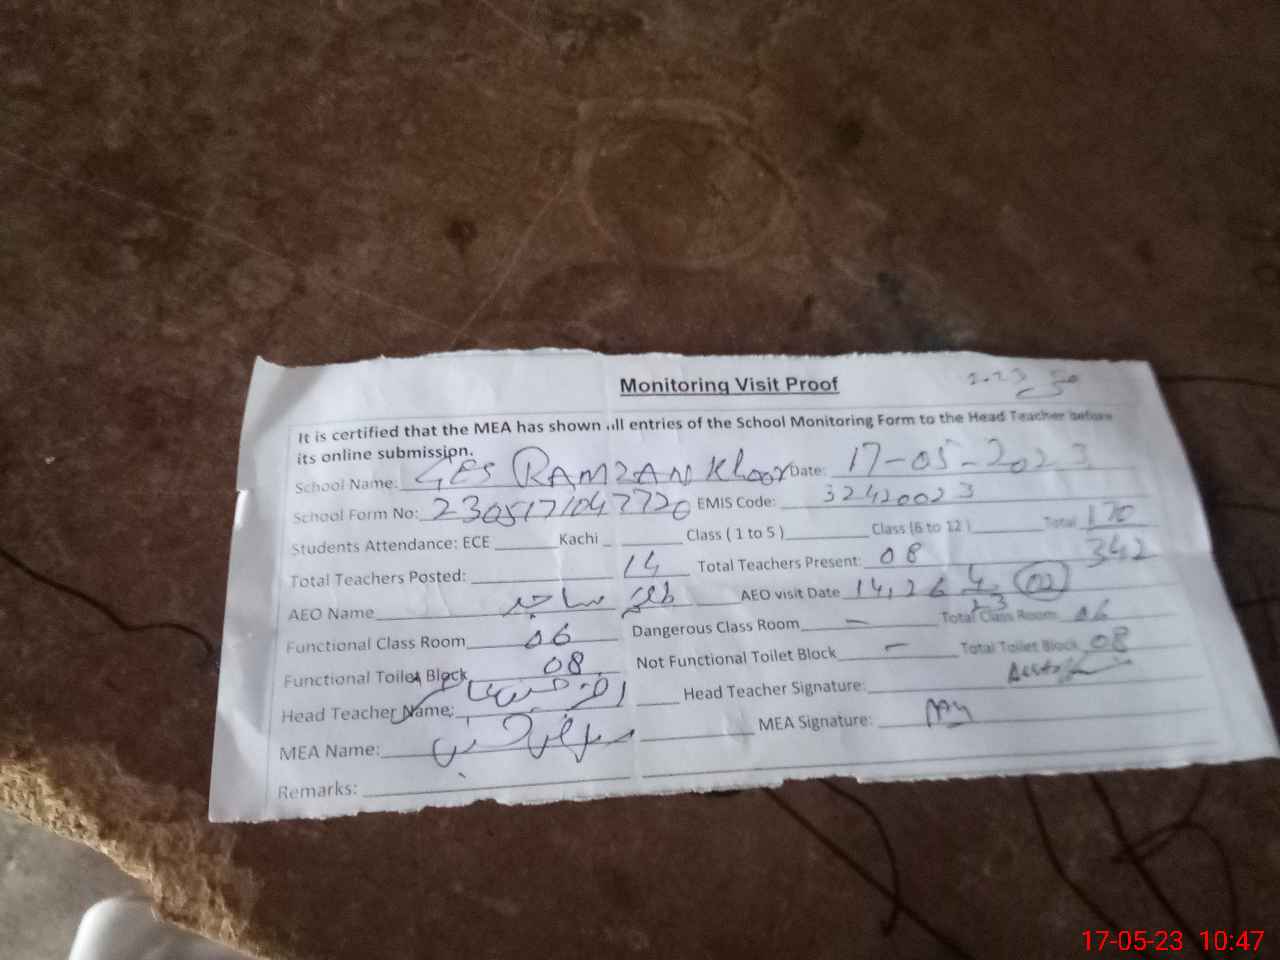 Monitoring Visit Proof
It is certified that the MEA has shown all entries of the School Monitoring Form to the Head Teacher before
its online submission.
School Name: GES RAMZAN Khoor Date: 17-05-2023
School Form No: 2305171047720 EMIS Code: 32420023
Students Attendance: ECE Kachi Class ( 1 to 5 ) Class (6 to 12 ) Total 170
342
Total Teachers Posted: 14 Total Teachers Present: 08
AEO Name ساجد AEO visit Date 14,26 02
Functional Class Room 06 Dangerous Class Room — Total Class Room 06
Functional Toilet Block 08 Not Functional Toilet Block — Total Toilet Block 08
Head Teacher Name: Head Teacher Signature:
MEA Name: MEA Signature:
Remarks:
17-05-23 10:47